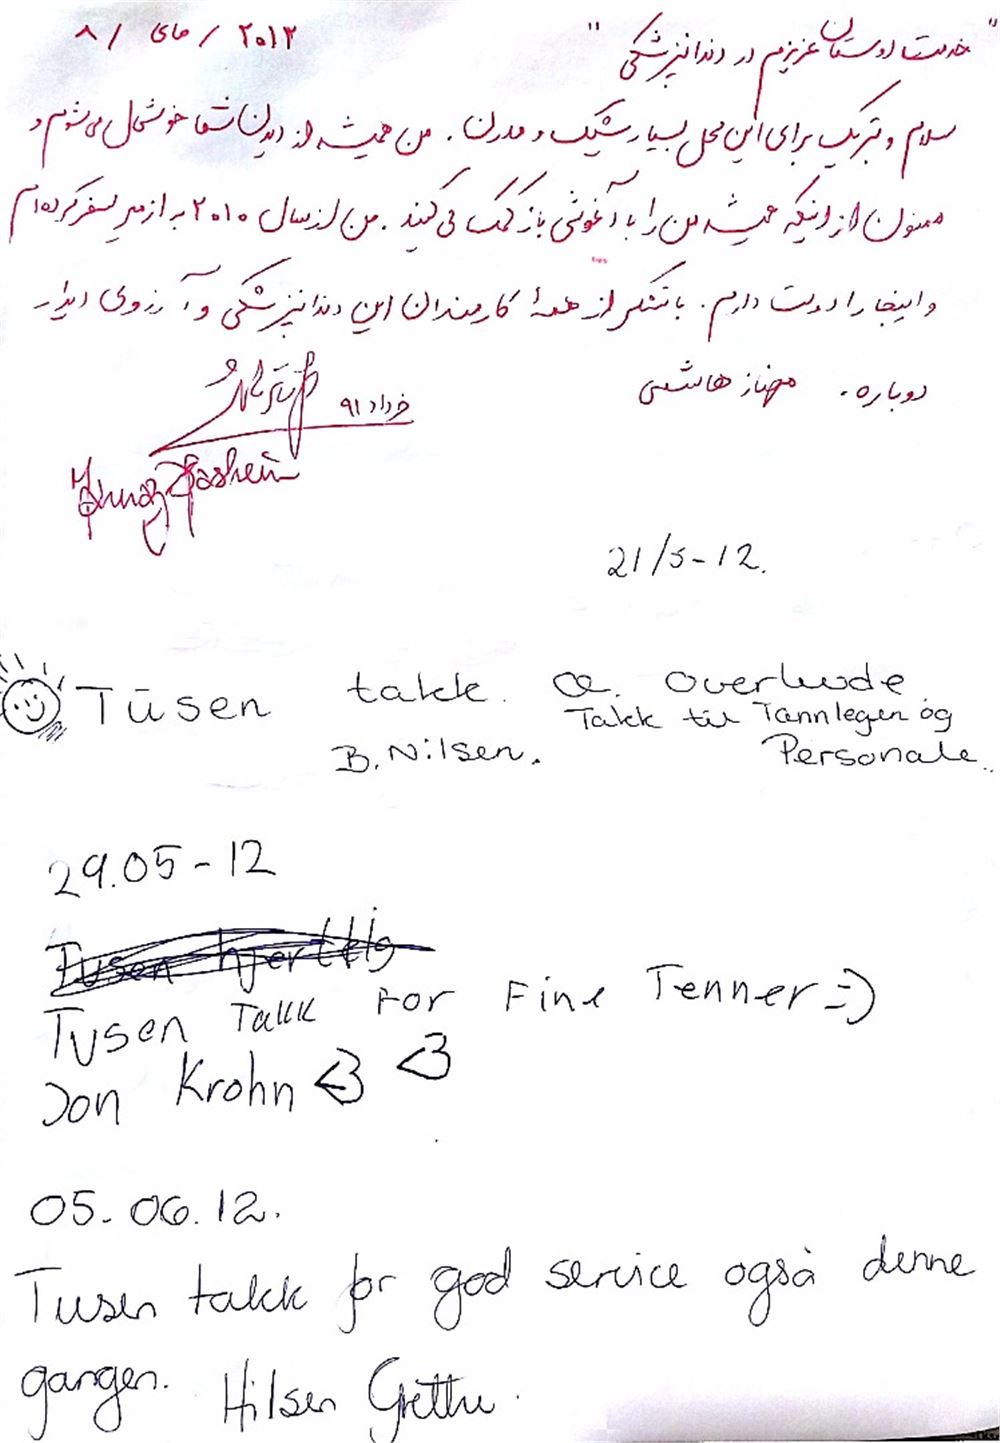 " خدمت دوستان عزیزم در دندانپزشکی " ۸ / مای / ۲۰۱۲
سلام و تبریک برای این محل بسیار شیک و مدرن . من همیشه از دیدن شما خوشحال می‌شوم و
ممنون از اینکه همیشه من را با آغوشی باز کمک می‌کنید . من از سال ۲۰۱۰ به ازمیر سفر کرده‌ام
و اینجا را دوست دارم . با تشکر از همهٔ کارمندان این دندانپزشکی و آرزوی دیدار
دوباره . مهناز هاشمی
خرداد ۹۱
21/5-12.
Tusen takk.
Takk til Tannlegen og
B. Nilsen. Personale.
29.05-12
Tusen hjertelig
Tusen Takk For Fine Tenner =)
Jon Krohn <3 <3
05.06.12.
Tusen takk for god service også denne
gangen. Hilsen